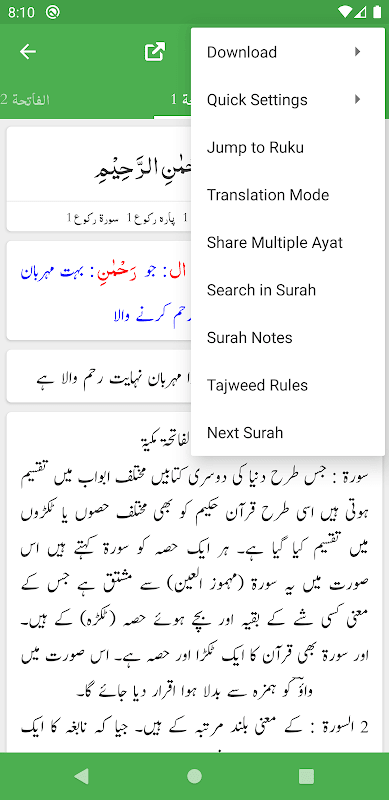 8:10
الفاتحة 2
1
Download
Quick Settings
Jump to Ruku
Translation Mode
Share Multiple Ayat
Search in Surah
Surah Notes
Tajweed Rules
Next Surah
الرَّحِيْمِ
1 پارہ رکوع 1 سورۃ رکوع 1
ال : جو رَحْمٰنِ : بہت مہربان
رحم کرنے والا
مہربان نہایت رحم والا ہے
الفاتحة مكية
سورۃ : جس طرح دنیا کی دوسری کتابیں مختلف ابواب میں تقسیم
ہوتی ہیں اسی طرح قرآن حکیم کو بھی مختلف حصوں یا ٹکڑوں
میں تقسیم کیا گیا ہے۔ ہر ایک حصہ کو سورۃ کہتے ہیں اس
صورت میں یہ سورۃ (مہموز العین) سے مشتق ہے جس کے
معنی کسی شے کے بقیہ اور بچے ہوئے حصہ (ٹکڑہ) کے ہیں۔
اور سورۃ بھی قرآن کا ایک ٹکڑا اور حصہ ہے۔ اس صورت میں
واؤ کو ہمزہ سے بدلا ہوا اقرار دیا جائے گا۔
2 السورۃ : کے معنی بلند مرتبہ کے ہیں۔ جیا کہ نابغہ کا ایک